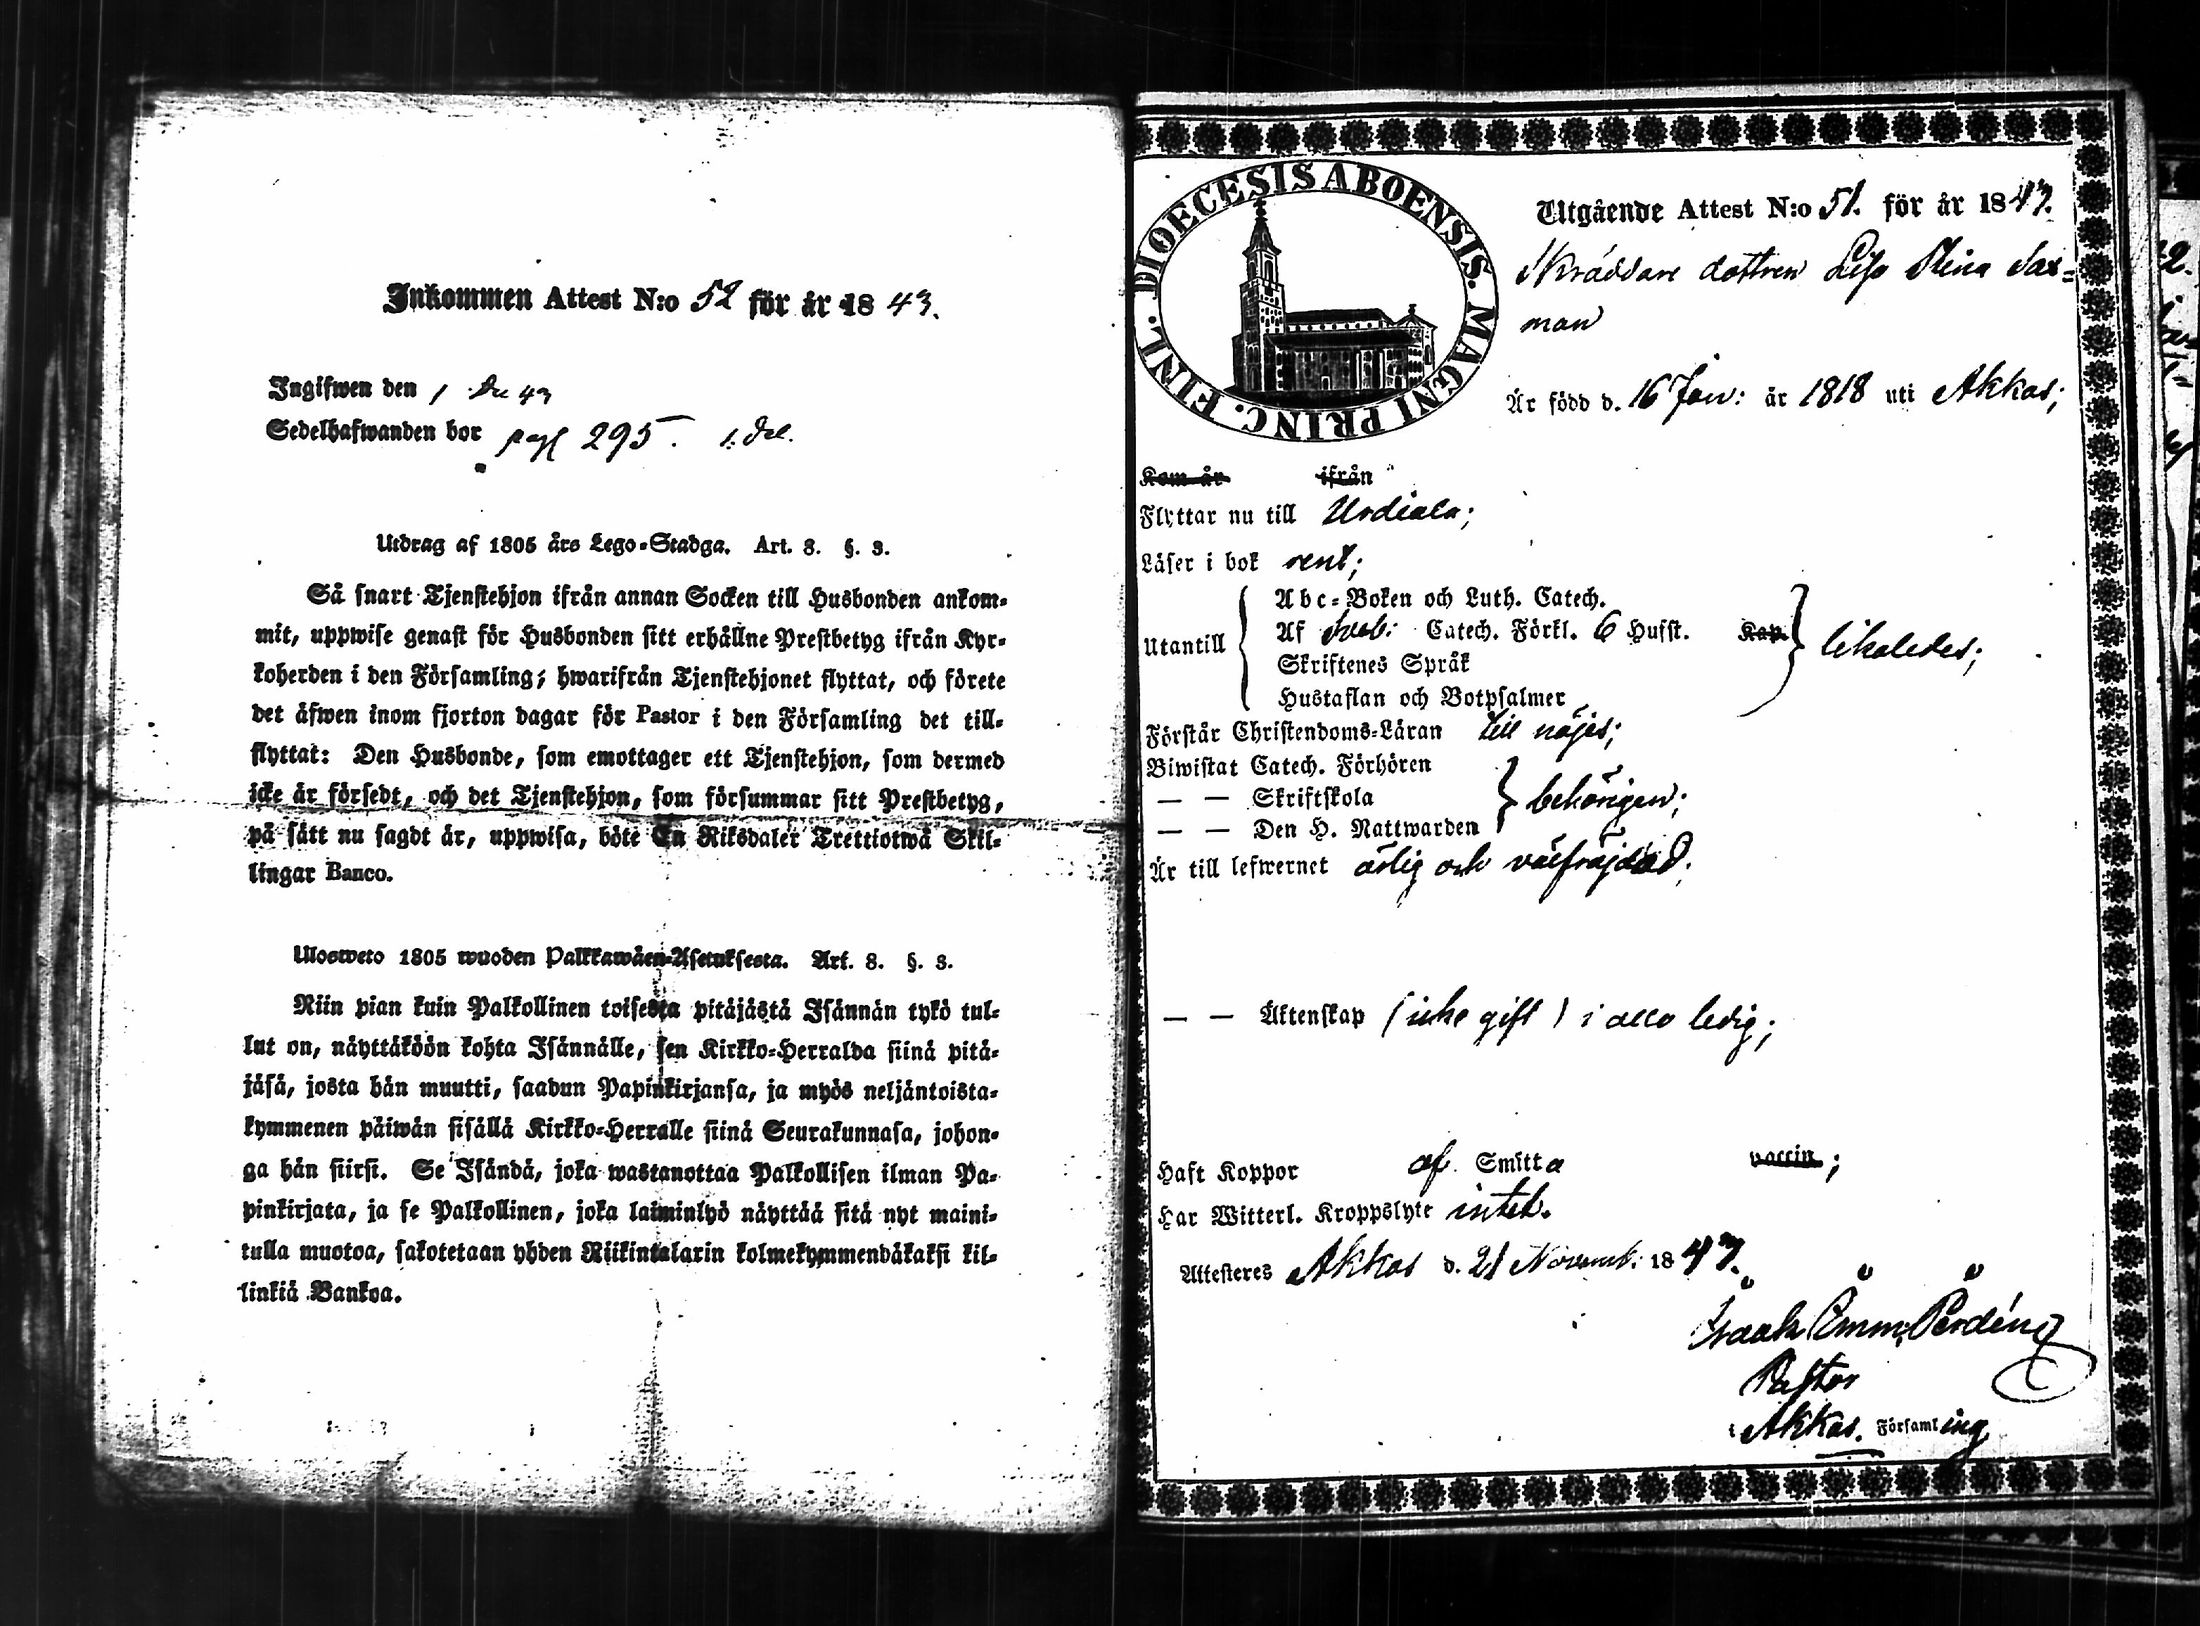 Inkommen Attest N:o 52 för år 1843.
Ingifwen den 1 Dec 43
Sedelhafwanden bor pag 295. 1. Del.
Utdrag af 1805 års Lego-Stadga. Art. 8. §. 3.
Så snart Tjenstehjon ifrån annan Socken till Husbonden ankom-
mit, uppwise genast för Husbonden sitt erhållne Prestbetyg ifrån Kyr-
koherden i den Församling; hwarifrån Tjenstehjonet flyttat, och förete
det äfwen inom fjorton dagar för Pastor i den Församling det till-
flyttat: Den Husbonde, som emottager ett Tjenstehjon, som dermed
icke är försedt, och det Tjenstehjon, som försummar sitt Prestbetyg,
på sätt nu sagdt är, uppwisa, böte En Riksdaler Trettiotwå Skil-
lingar Banco.
Ulosweto 1805 wuoden Palkkawäen-Asetuksesta. Art. 8. §. 3.
Niin pian kuin Palkollinen toisesta pitäjästä Isännän tykö tul-
lut on, näyttäköön kohta Isännälle, sen Kirkko-Herralda siinä pitä-
jäsä, josta hän muutti, saadun Papinkirjansa, ja myös neljäntoista-
kymmenen päiwän sisällä Kirkko-Herralle siinä Seurakunnasa, johon-
ga hän siirsi. Se Isändä, joka wastanottaa Palkollisen ilman Pa-
pinkirjata, ja se Palkollinen, joka laiminlyö näyttää sitä nyt maini-
tulla muotoa, sakotetaan yhden Riikintalarin kolmekymmendäkaksi kil-
linkiä Bankoa.
DIOECESIS ABOENSIS. MAGNI PRINC. FINL.
Utgående Attest N:o 51. för år 1843.
Skräddare dottren Lisa Stina Sax-
man
Är född d. 16 Jan: år 1818 uti Akkas;
Kom år ifrån
Flyttar nu till Urdiala;
Läser i bok rent;
Utantill
Abc-Boken och Luth. Catech.
Af Sveb: Catech. Förkl. 6 Husst. Kap.
Skriftenes Språk
Hustaflan och Botpsalmer
likaledes;
Förstår Christendoms-Läran till nöjes;
Biwistat Catech. Förhören
— — Skriftskola
— — Den H. Nattwarden
behörigen;
Är till lefwernet ärlig och välfräjdad;
— — Äktenskap (icke gift) i allo ledig;
Haft Koppor af Smitta vaccin;
Har Witterl. Kroppslyte intet.
Attesteres Akkas d. 21 Novemb: 1843.
Isaak Emm. Perdén
Pastor
i Akkas. Församling